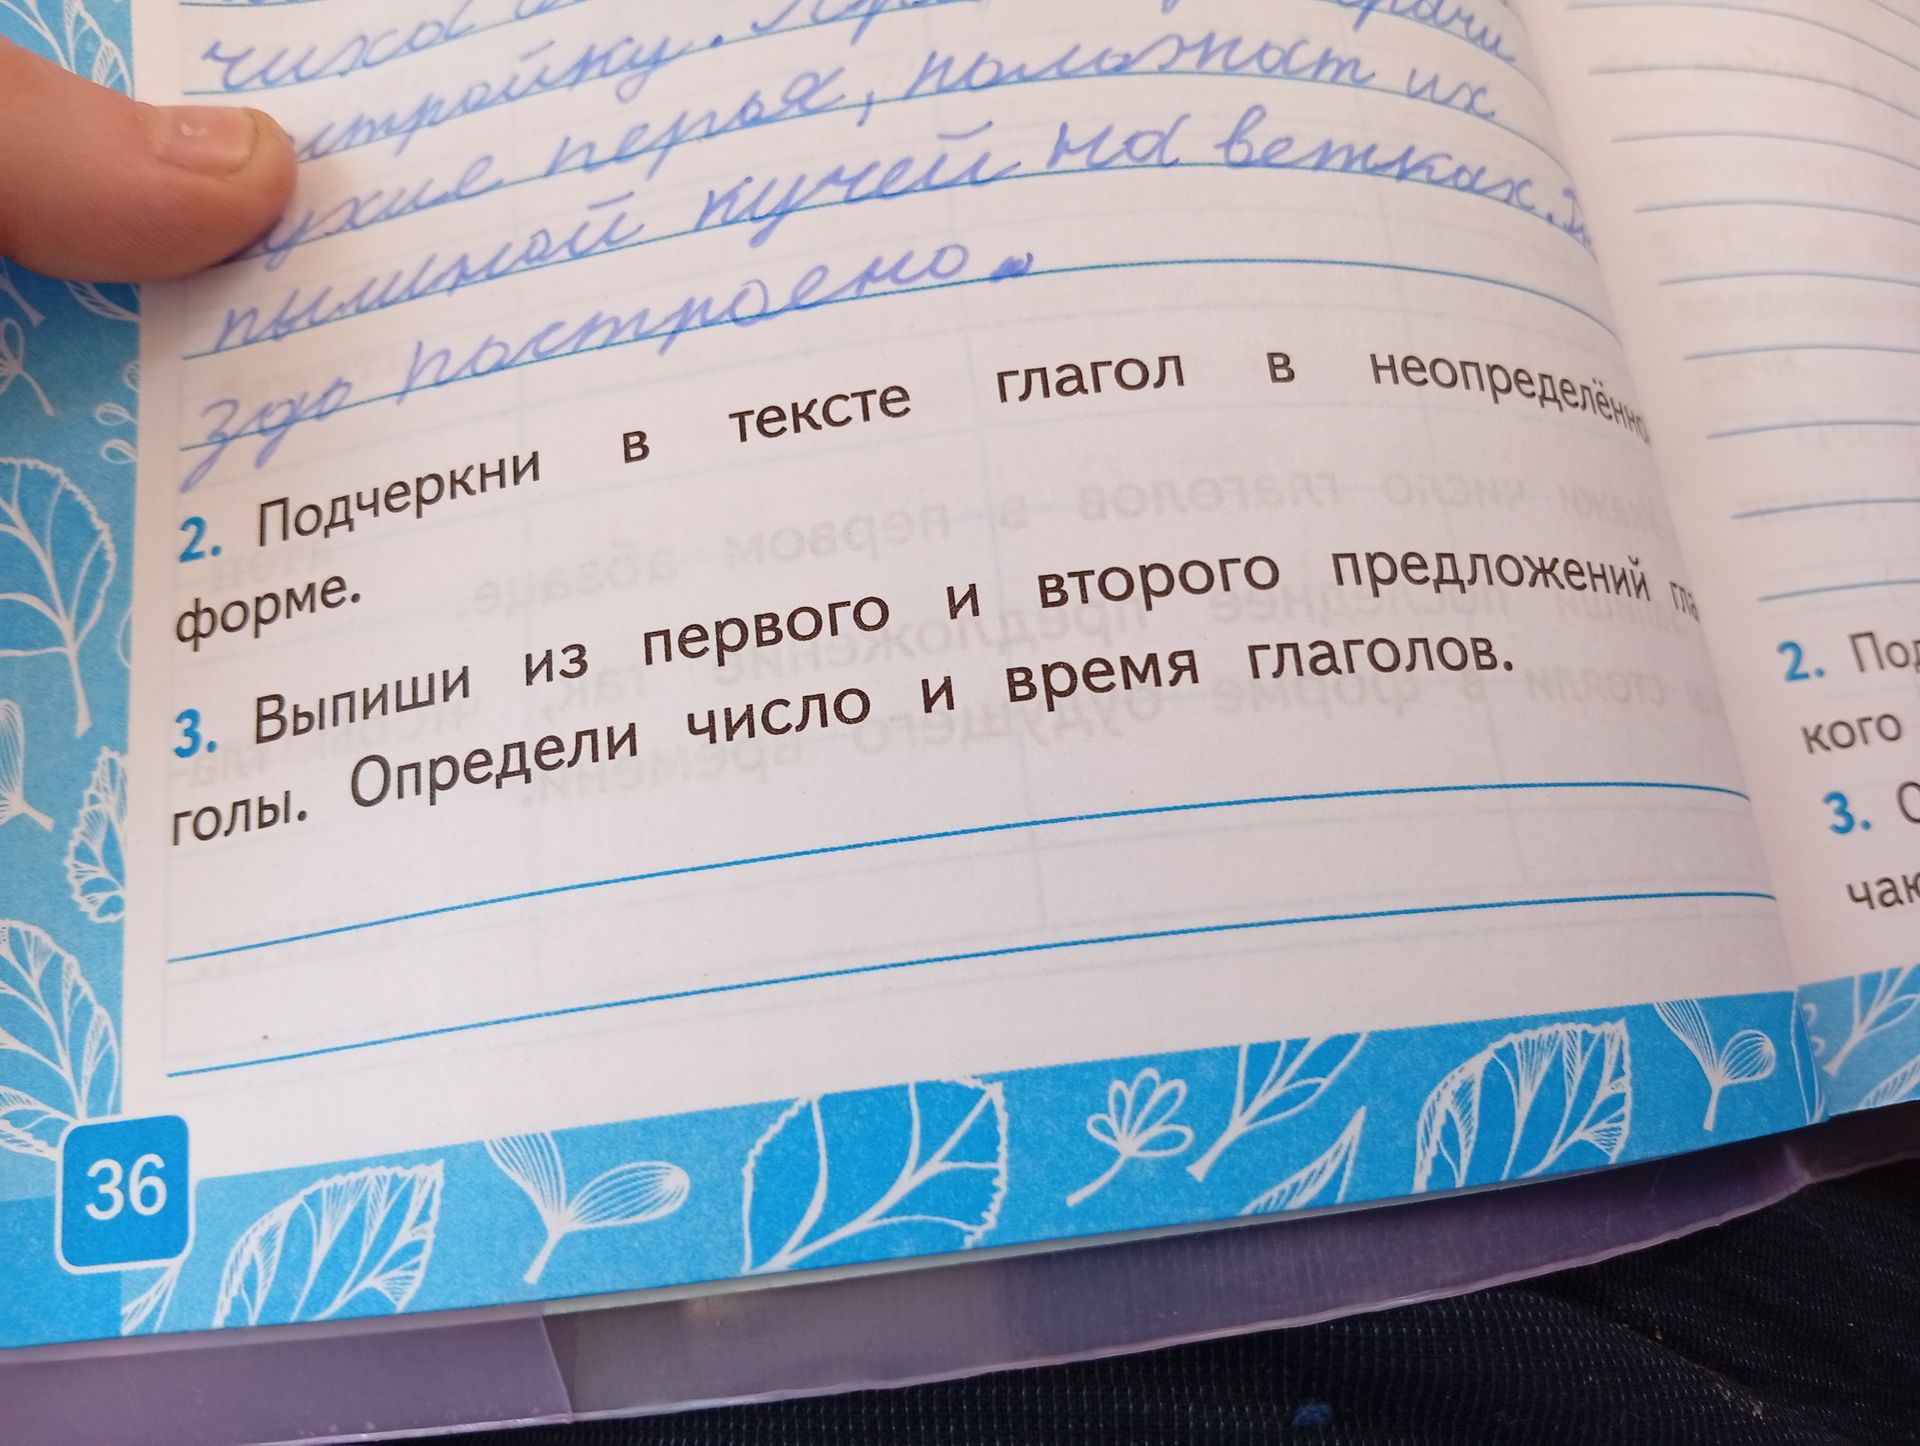 чиха
стройку.
ухие перья, положат их
пышной кучей на ветках.
здо построено.
2. Подчеркни в тексте глагол в неопределённо
форме.
3. Выпиши из первого и второго предложений гла
голы. Определи число и время глаголов.
36
2. Под
кого
3. О
чаю